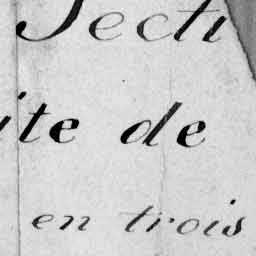 Secti
ite de
en trois